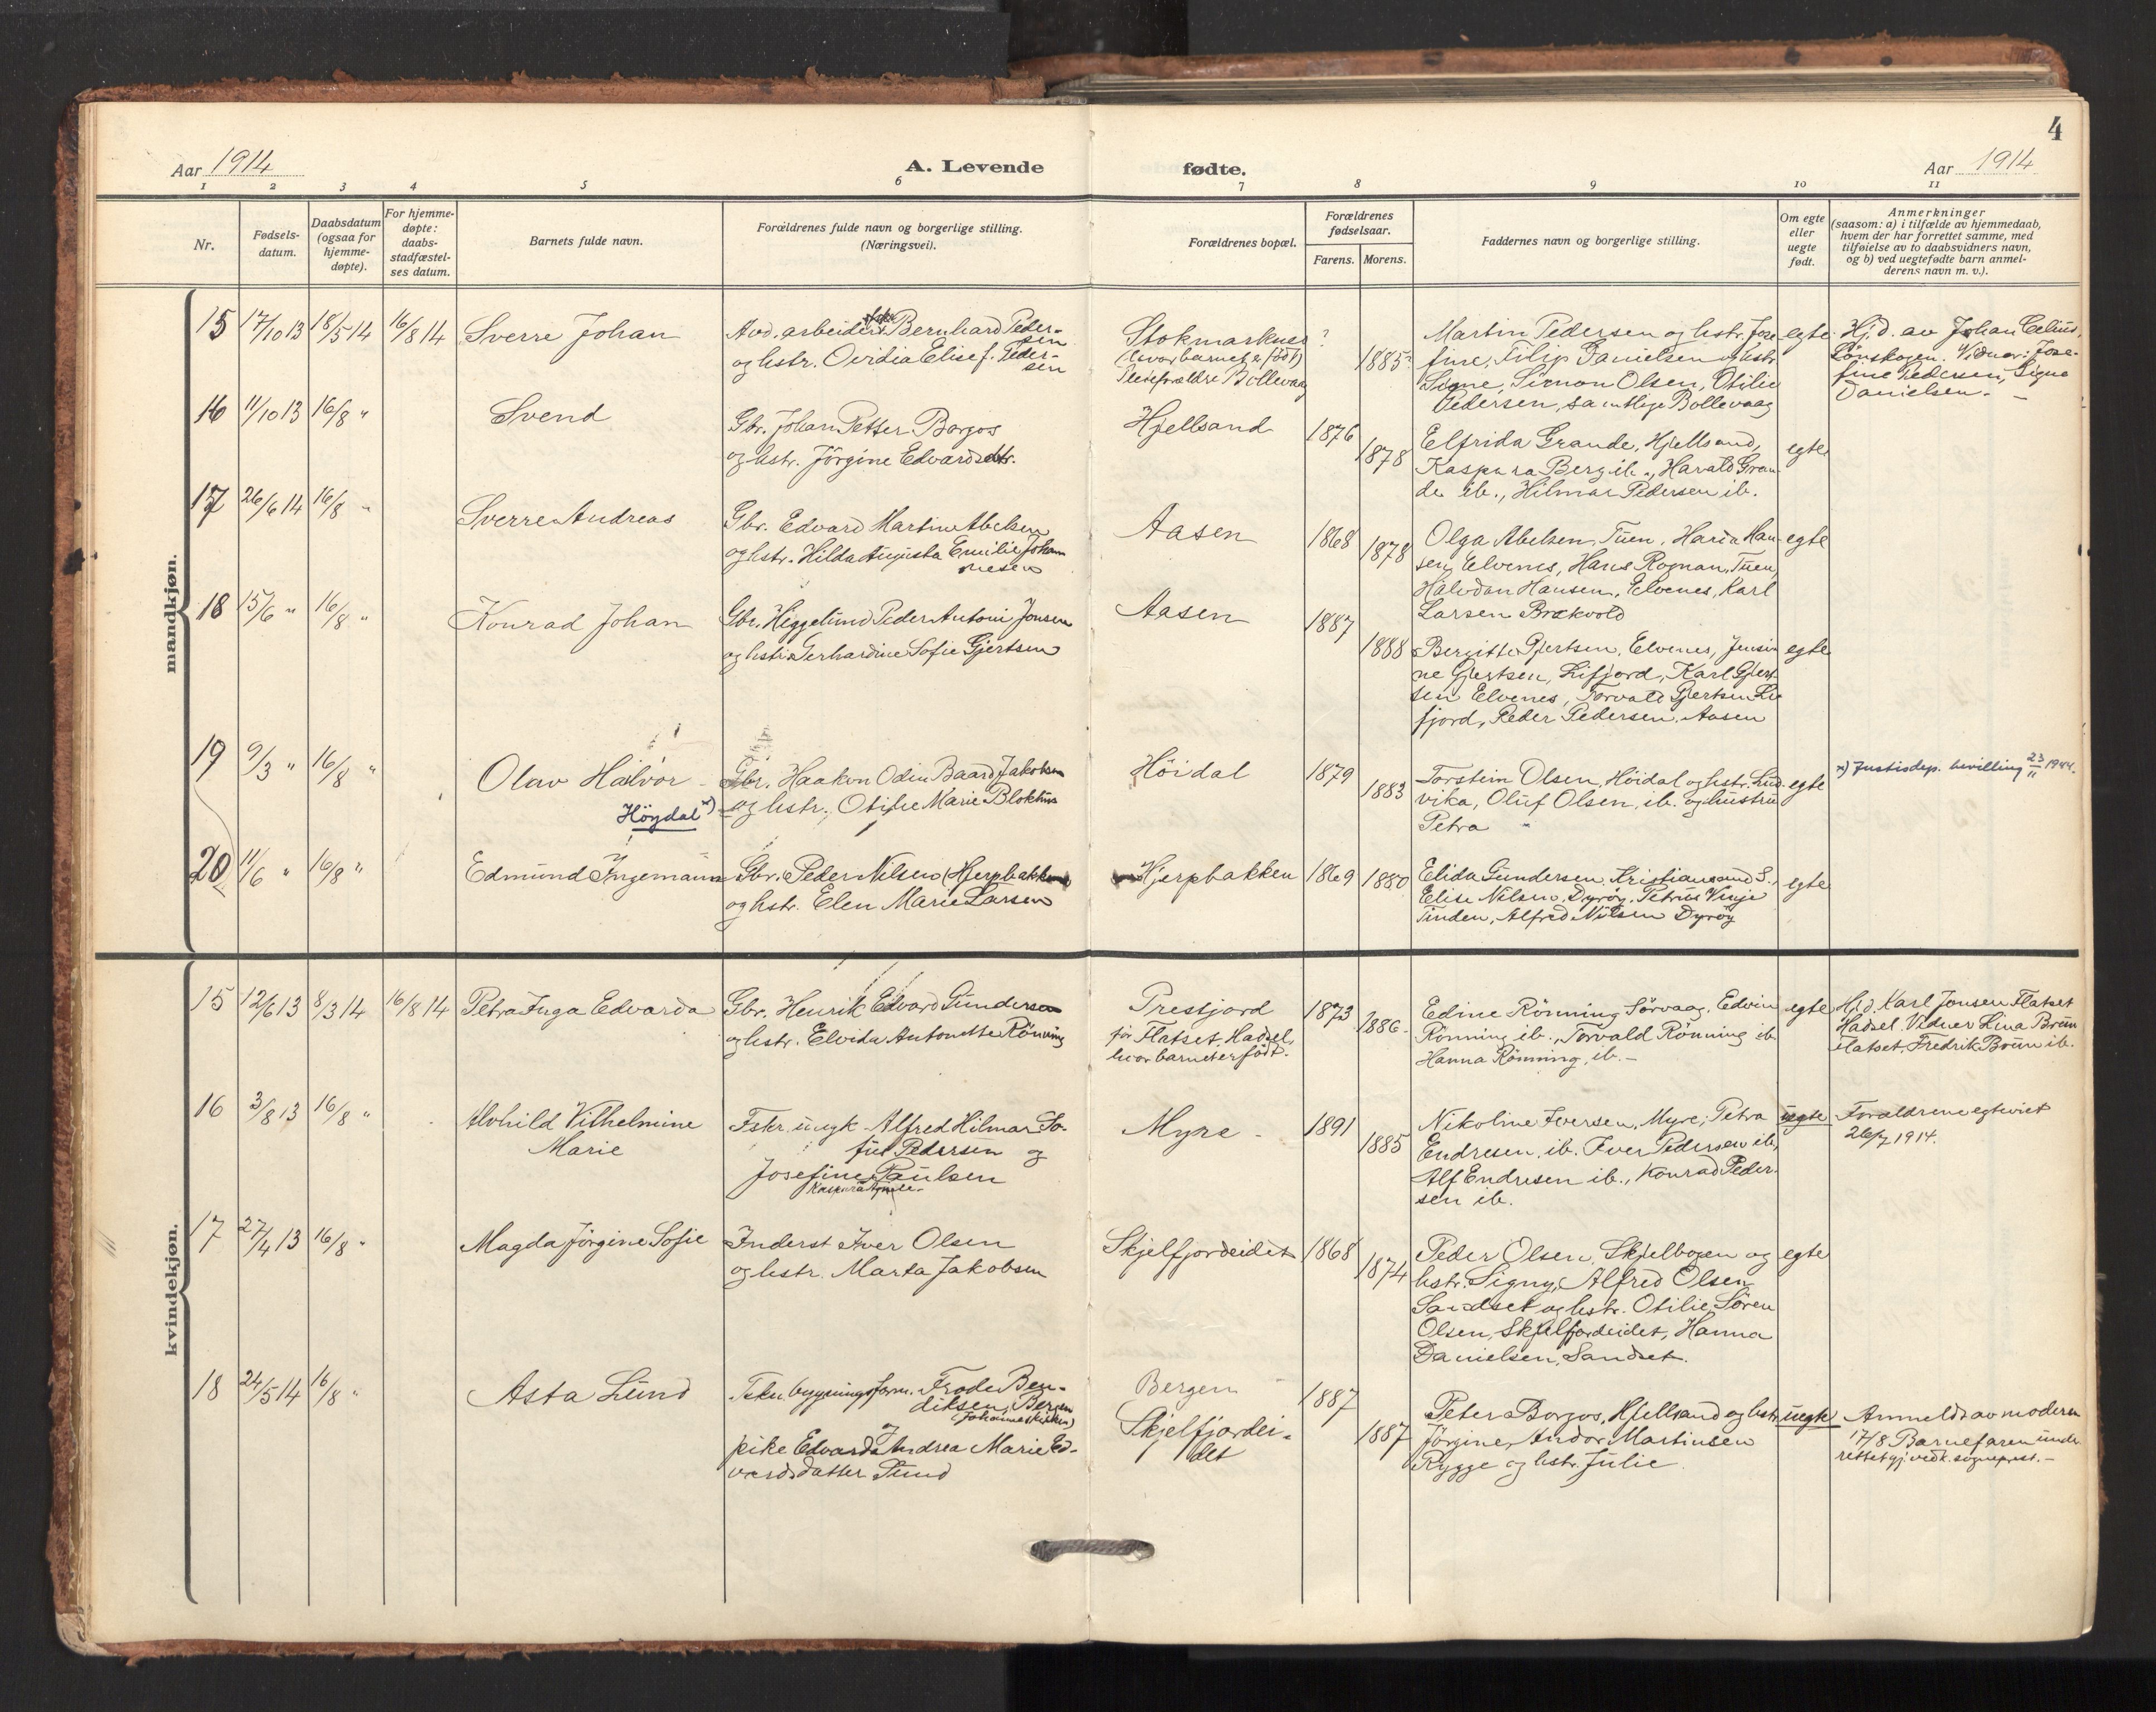 4
Aar 1914
A. Levende
fødte.
Aar 1914
1 2 3 4 5 6 7 8 9 10 11
Nr.
Fødsels-
datum.
Daabsdatum
(ogsaa for
hjemme-
døpte).
For hjemme-
døpte:
daabs-
stadfæstel-
ses datum.
Barnets fulde navn.
Forældrenes fulde navn og borgerlige stilling.
(Næringsvei).
Forældrenes bopæl.
Forældrenes
fødselsaar.
Farens. Morens.
Faddernes navn og borgerlige stilling.
Om egte
eller
uegte
født.
Anmerkninger
(saasom: a) i tilfælde av hjemmedaab,
hvem der har forrettet samme, med
tilføielse av to daabsvidners navn,
og b) ved uegtefødte barn anmel-
derens navn m. v.).
mandkjøn.
15 17/10 13 18/5 14 16/8 14 Sverre Johan
Avd. arbeider Bernhard Peder-
sen
og hstr. Ovidia Elise f. Peder-
sen
Stokmarknes
(hvor barnet er født)
Pleieforældre Bollevaag
? 1885?
Martin Pedersen og hstr. Jose
fine, Filip Danielsen og hstr
Signe, Simon Olsen, Otilie
Pedersen, samtlige Bollevaag
egte
Hjd. av Johan Celius,
Lönskogen. Vidner: Jose-
fine Pedersen, Signe
Danielsen. -
16 11/10 13 16/8 " Svend
Gbr. Johan Petter Borgos
og hstr. Jörgine Edvardsdtr.
Hjellsand 1876 1878
Elfrida Grande, Hjellsand,
Kaspara Berg ib., Harald Gran-
de ib., Hilmar Pedersen ib.
egte
17 26/6 14 16/8 " Sverre Andreas
Gbr. Edvard Martin Abelsen
og hstr. Hilda Augusta Emilie Johan
nesen
Aasen 1868 1878
Olga Abelsen, Tuen, Maria Han-
sen Elvenes, Hans Rognan, Tuen,
Halvdan Hansen, Elvenes, Karl
Larsen Brækvold
egte
18 15/6 " 16/8 " Konrad Johan
Gbr. Heggelund Peder Antoni Jonsen
og hstr. Gerhardine Sofie Gjertsen
Aasen 1887 1888
Bergitte Gjertsen, Elvenes, Jensi
ne Gjertsen, Lifjord, Karl Gjert
sen Elvenes, Torvald Gjertsen Li
fjord, Peder Pedersen, Aasen
egte
19 9/3 " 16/8 " Olav Halvor
Höydal x)
Gbr. Haakon Odin Baard Jakobsen
og hstr. Otilie Marie Bloktus
Höidal 1879 1883
Torstein Olsen, Höidal og hstr. Lud-
vika, Oluf Olsen, ib. og hustru
Petra "
egte
x) Justisdep. bevilling 23/11 1944.
20 11/6 " 16/8 " Edmund Ingemann
Gbr. Peder Nilsen (Hjerpbakken)
og hstr. Elen Marie Larsen
Hjerpbakken 1869 1880
Elida Gundersen, Kristiansund S.,
Elise Nilsen, Dyröy, Petrus Vinje
Tinden, Alfred Nilsen Dyröy
egte
kvindekjøn.
15 12/6 13 8/3 14 16/8 14 Petra Inga Edvarda
Gbr. Henrik Edvard Gundersen
og hstr. Elvida Antonette Rönning
Prestjord
før Flatset, Hadsel,
hvor barnet er født.
1873 1886
Edine Rönning Sörvaag, Edvin
Rönning ib., Torvald Rönning ib
Hanna Rönning, ib. -
egte
Hjd. Karl Jonsen Flatset
Hadsel. Vidner Lina Brun
Flatset, Fredrik Brun ib.
16 3/8 13 16/8 " Alvhild Vilhelmine
Marie
Fsker ungk. Alfred Hilmar So-
fus Pedersen og
Josefine Paulsen
Myre - 1891 1885
Nikoline Iversen, Myre, Petra
Endresen, ib. Iver Pedersen ib,
Alf Endresen ib., Konrad Peder-
sen ib.
uegte
Forældrene egteviet
26/7 1914.
17 27/4 13 16/8 " Magda Jörgine Sofie
Inderst Iver Olsen
og hstr. Marta Jakobsen
Skjelfjordeidet 1868 1874
Peder Olsen, Skjelbogen og
hstr. Signy, Alfred Olsen
Sandset og hstr. Otilie, Sören
Olsen, Skjelfjordeidet, Hanna
Danielsen, Sandset.
egte
18 24/5 14 16/8 " Asta Lund
Tekn. bygningsform. Frode Ben-
diksen, Bergen
(Johanneskirken)
og
pike Edvarda Andrea Marie Ed-
vardsdatter Lund
Bergen
Skjelfjordei-
det
1887 1887
Peter Borgos, Hjellsand og hstr
Jörgine, Andor Martinsen
Rygge og hstr. Julie
uegte
Anmeldt av moderen
17/8 Barnefaren under-
rettet gj. vedk. sogneprest. -